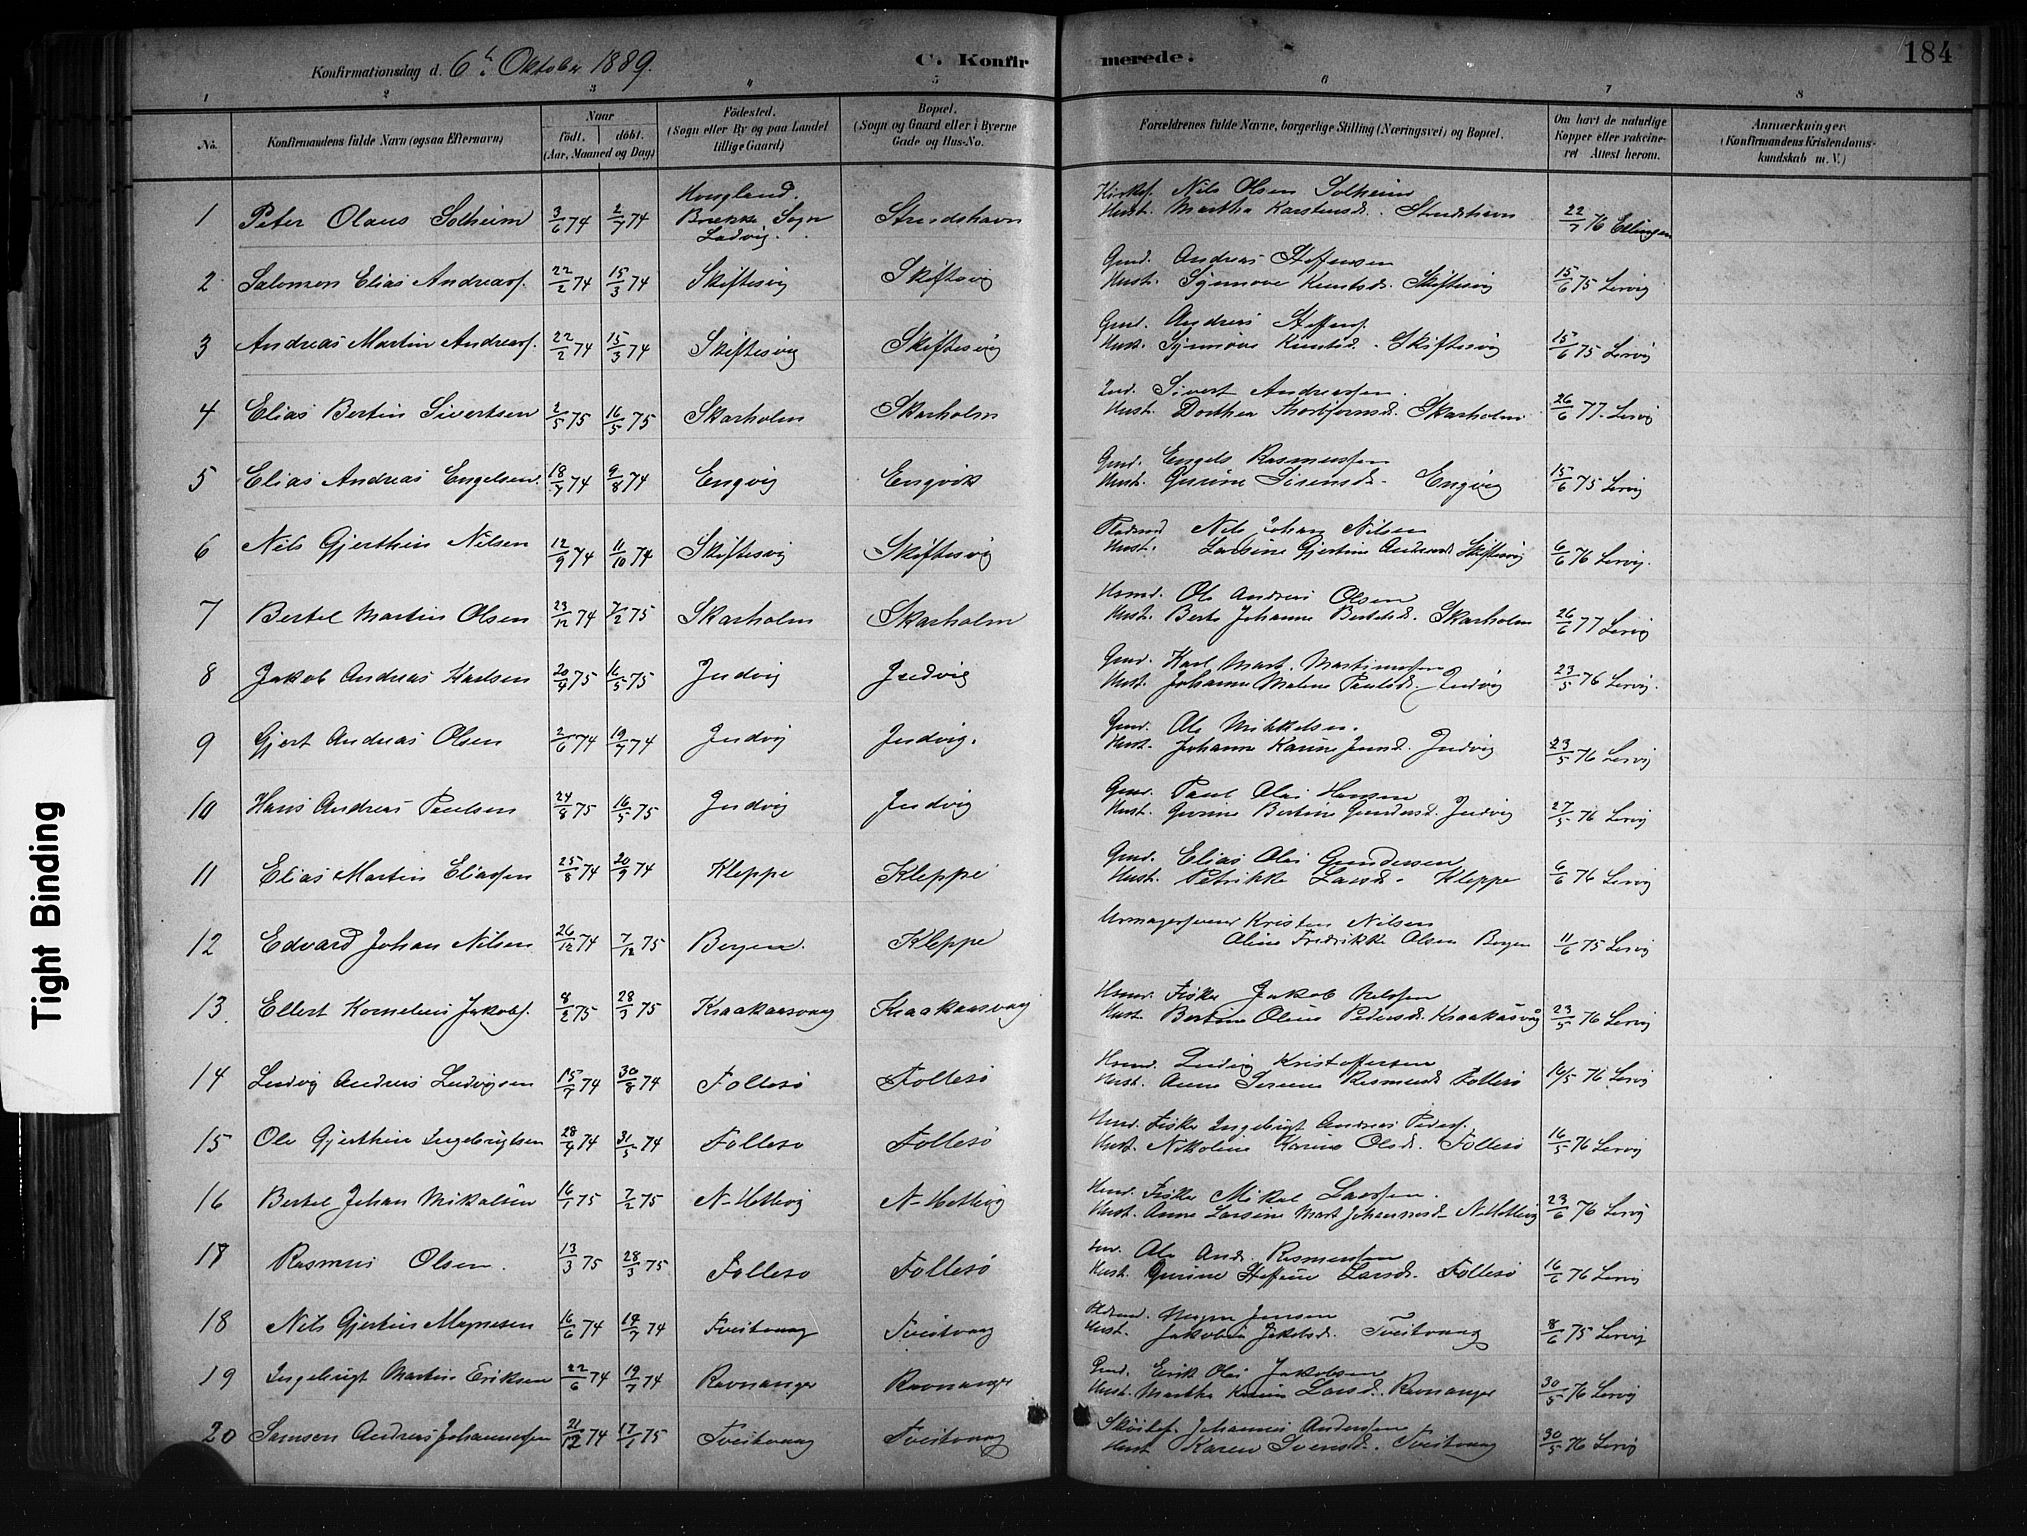 Konfirmationsdag d. 6te Oktober 1889. C. Konfirmerede. 184
1 2 3 4 5 6 7 8
No. Konfirmandens fulde Navn (ogsaa Efternavn) Naar født. døbt. (Aar, Maaned og Dag) Fødested. (Sogn eller By og paa Landet tillige Gaard) Bopæl. (Sogn og Gaard eller i Byerne Gade og Hus-No. Forældrenes fulde Navne, borgerlige Stilling (Næringsvei) og Bopæl. Om havt de naturlige Kopper eller vakcineret Attest herom. Anmærkninger (Konfirmandens Kristendomskundskab m. V.)
1 Peter Olaus Solheim 3/6 74 2/7 74 Hougland. Brække Sogn Ladvig. Strudshavn Kirkes. Nils Olsen Solheim
Hust. Martha Karstensd. Strudshavn 22/7 76 Ellingsen
2 Salomon Elias Andreasf. 22/2 74 15/3 74 Skiftesvig Skiftesvig Gmd. Andreas Steffensen
Hust. Synnove Knutsd. Skiftesvig 15/6 75 Lervig
3 Andreas Martin Andreasf. 22/2 74 15/3 74 Skiftesvig Skiftesvig Gmd. Andreas Steffens.
Hust. Synnove Knutsd. Skiftesvig 15/6 75 Lervig
4 Elias Bertin Sivertsen 2/5 75 16/5 75 Skarholm Skarholm Sivert Andreassen.
Hust. Dorthea Thorbjørnsd. Skarholm 26/6 77. Lervig
5 Elias Andreas Engelsen 18/7 74 9/8 74 Engvig Engvik Gmd. Engels Rasmussen
Hust. Gurine Sirensd. Engvig 15/6 75 Lervig
6 Nils Gjerthin Nilsen 12/9 74 11/10 74 Skiftesvig Skiftesvig Pladsmd Nils Johan Nilsen
Hust. Larsine Gjertine Andersd. Skiftesvig 6/6 76 Lervig.
7 Bertel Martin Olsen 23/12 74 7/2 75 Skarholm Skarholm Husmd. Ole Andreas Olsen
Hust. Berte Johanne Bertelsd. Skarholm 26/6 77 Lervig
8 Jakob Andreas Karlsen 20/4 75 16/5 75 Indvig Indvig Gmd. Karl Mart. Martinussen
Hust. Johanne Maline Paulsd. Indvig 23/5 76 Lervig.
9 Gjert Andreas Olsen 2/6 74 19/7 74 Indvig Indvig. Gmd. Ole Mikkelsen.
Hust. Johanne Karine Jensd. Indvig 23/5 76 Lervig
10 Hans Andreas Paulsen 24/8 75 16/5 75 Indvig Indvig Gmd. Paul Olai Hansen
Hust. Gurine Bertine Gundersd. Indvig 27/5 76 Lervig
11 Elias Martin Eliassen 25/8 74 20/9 74 Kleppe Kleppe Gmd. Elias Olai Gundersen
Hust. Petrikke Larsd. Kleppe 6/6 76 Lervig
12 Edvard Johan Nilsen 26/12 74 7/12 75 Bergen. Kleppe Urmagersvend Kristen Nilsen
Aline Fredrikke Olsen Bergen 11/6 75 Lervig
13 Ellert Kornelius Jakobs. 8/2 75 28/3 75 Kraakaasvaag Kraakaasvaag Husmd. Fisker Jakob Nelssen
Hust. Bertine Oline Pedersd. Kraakåsvåg 23/5 76 Lervig
14 Ludvig Andreas Ludvigsen 15/7 74 30/8 74 Follesø Follesø Husmd. Ludvig Kristoffersen
Hust. Anne Serene Rasmusd. Follesø 16/5 76 Lervig
15 Ole Gjerthin Ingebrigtsen 28/4 74 31/5 74 Follesø Follesø Hmd. Fisker Ingebrigt Andreas Peders.
Hust. Nikoline Karine Olsd. Follesø 16/5 76 Lervig
16 Bertel Johan Mikalsen 16/1 75 7/2 75 N-Hetlevig N-Hetlevig Hmd. Fisker Mikal Larssen.
Hust. Anne Larsine Mart Johannesd. N Hetlevig 23/6 76 Lervig
17 Rasmus Olsen. 13/3 75 28/3 75 Follesø Follesø Ole Andr. Rasmussen
Hust. Gurine Steffine Larsd. Follesø 16/6 76 Lervig
18 Nils Gjertin Magnesen 16/6 74 19/7 74 Tveitvaag Tveitvaag Pladsmd. Magne Jensen
Hust. Jakobine Jakobsd. Tveitvaag 8/6 75 Lervig
19 Ingebrigt Martin Eriksen 22/6 74 19/7 74 Ravnanger Ravnanger Gmd. Erik Olai Jakobsen
Hust. Martha Karine Larsd. Ravnanger 30/5 76 Lervig
20 Samson Andreas Johannessen 21/12 74 17/1 75 Tveitvaag Tveitvaag Johannes Anderssen
Hust Karen Svensd. Tveitvaag 30/5 76 Lervig
Tight Binding